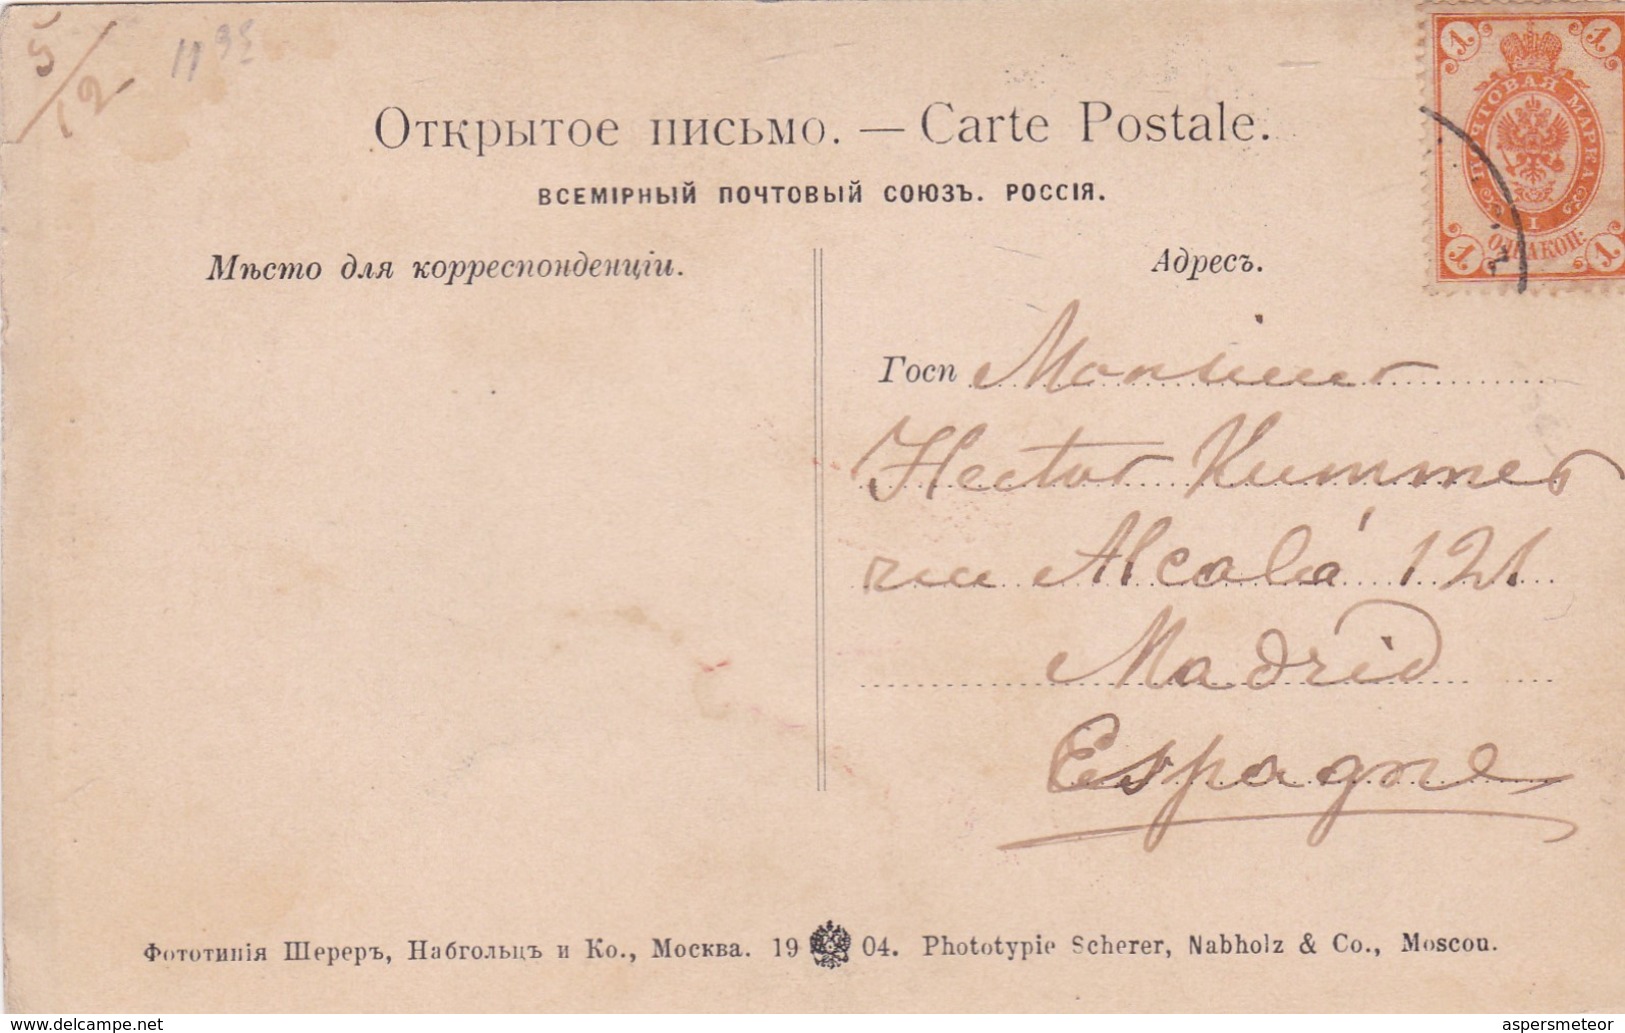 5/12
Открытое письмо. — Carte Postale.
ВСЕМІРНЫЙ ПОЧТОВЫЙ СОЮЗЪ. РОССІЯ.
Мѣсто для корреспонденціи.
Адресъ.
1 1
ПОЧТОВАЯ МАРКА
1
ОДНА КОП:
1 1
Госп Monsieur
Hector Kummer
rue Alcalá 121
Madrid
Espagne
Фототипія Шереръ, Набгольцъ и Ко., Москва. 19 04. Phototypie Scherer, Nabholz & Co., Moscou.
https://www.delcampe.net
aspersmeteor